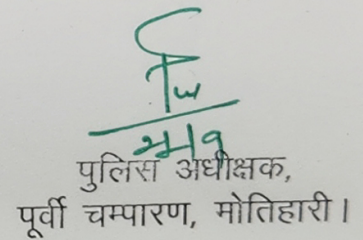 पुलिस अधीक्षक,
पूर्वी चम्पारण, मोतिहारी।